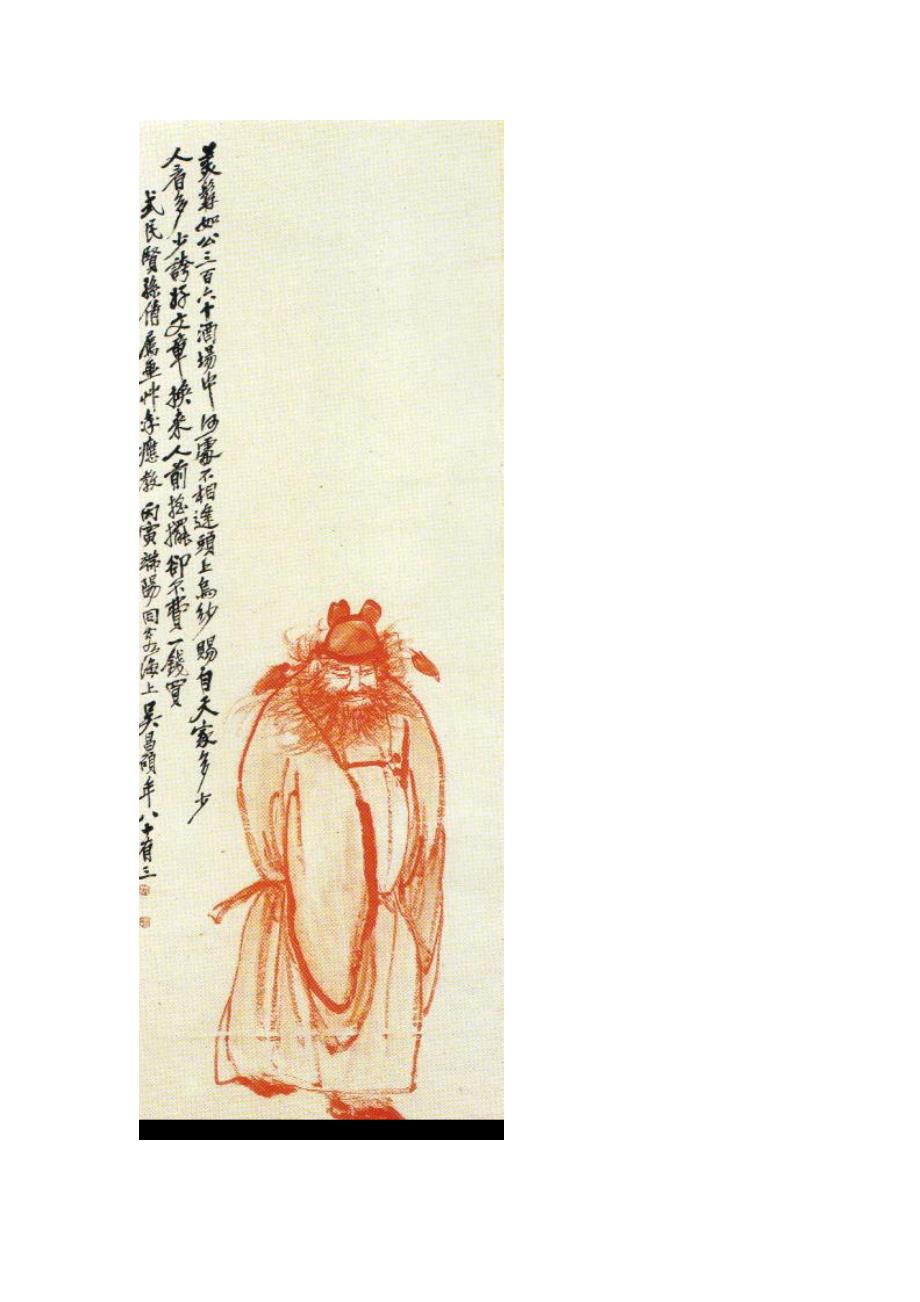 美髯如公三百六十酒場中何處不相逢頭上烏紗賜自天家多少
人看多少誇好文章換来人前搖擺卻不費一錢買
武民賢孫倩屬畫草率應教丙寅端陽同客海上吳昌碩年八十有三